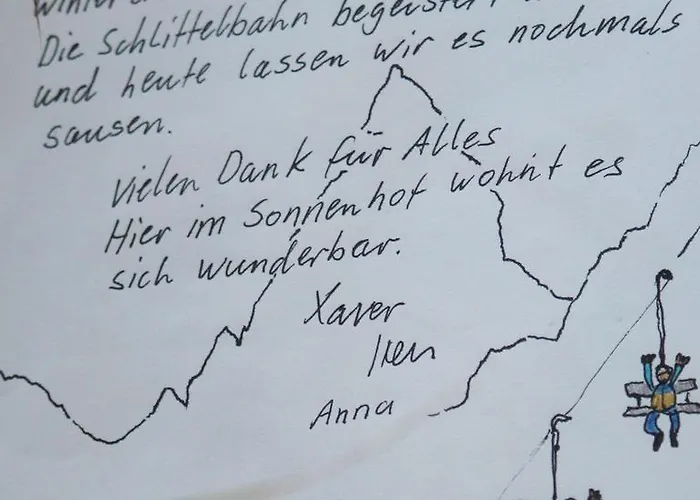 Winter
Die Schlittelbahn begeistert
und heute lassen wir es nochmals
sausen.
Vielen Dank für Alles
Hier im Sonnenhof wohnt es
sich wunderbar.
Xaver
Iren
Anna